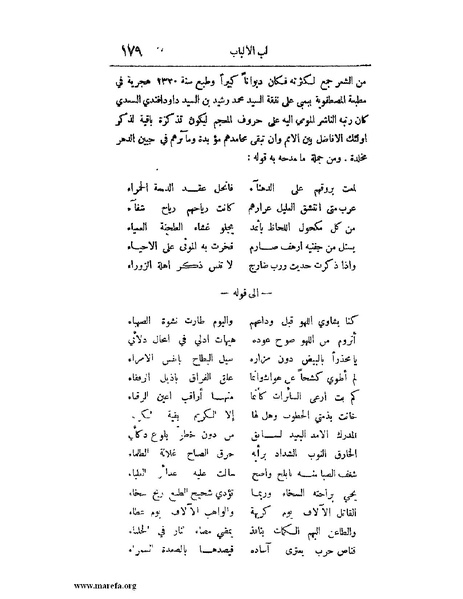 لب الالباب ١٧٩
من الشعر جمع لكثرته فكان ديواناً كبيراً وطبع سنة ١٣٣٠ هجرية في
مطبعة المصطفوية ببمبى على نفقة السيد محمد رشيد بن السيد داود افندي السعدي
كان رتبه الناشر المومى اليه على حروف المعجم ليكون تذكرة باقية لذكر
اولئك الافاضل بين الانم وان تبقى محامدهم مؤبدة ومآثرهم في جبين الدهر
مخلدة . ومن جملة ما مدحه به قوله :
لمعت بروقهم على الدهنآء فانحل عقد الدمعة الحمراء
عرب متى انتشق العليل عرارهم كانت رياحهم رياح شفآء
من كل مكحول اللحاظ باثمد يجلو غشاء الطخنة العمياء
يستل من جفنيه ارهف صارم فخرت به الموتى على الاحياء
واذا ذكرت حديث ورب ضارج لا تنس ذكر اهل الزوراء
— الى قوله —
كنا بشاوي اللهو قبل وداعهم واليوم طارت نشوة الصهباء
أتروم من اللهو صوح عوده هيهات ادلي في امحال دلائي
يا مخدراً بالبيض دون مزاره سيل البطاح بانفس الامراء
لم أطوي كشحاً عن هواك وانما علق الفراق باذيل الرفقاء
كم بت ارعى السائرات كأنما منها أراقب اعين الرقباء
خانت بذمتي الخطوب وهل لها إلا الكريم بقية
المدرك الامد البعيد لسابق من دون خطر بلوغ ذكاء
الخارق النوب الشداد برأيه خرق الصباح غلالة الظلماء
شغف الصبا منه بابلج واضح مالت عليه غدائر
يحيي براحته السخاء وربما تؤدي شحيح الطبع ريح سخاء
القاتل الآلاف يوم كريهة والواهب الآلاف يوم عطاء
والطاعن البهم الكماة بنافذ يمضي مضاء النار في الحلفاء
قناص حرب يعتزي آساده فيصدها بالصعدة السمراء
www.marefa.org